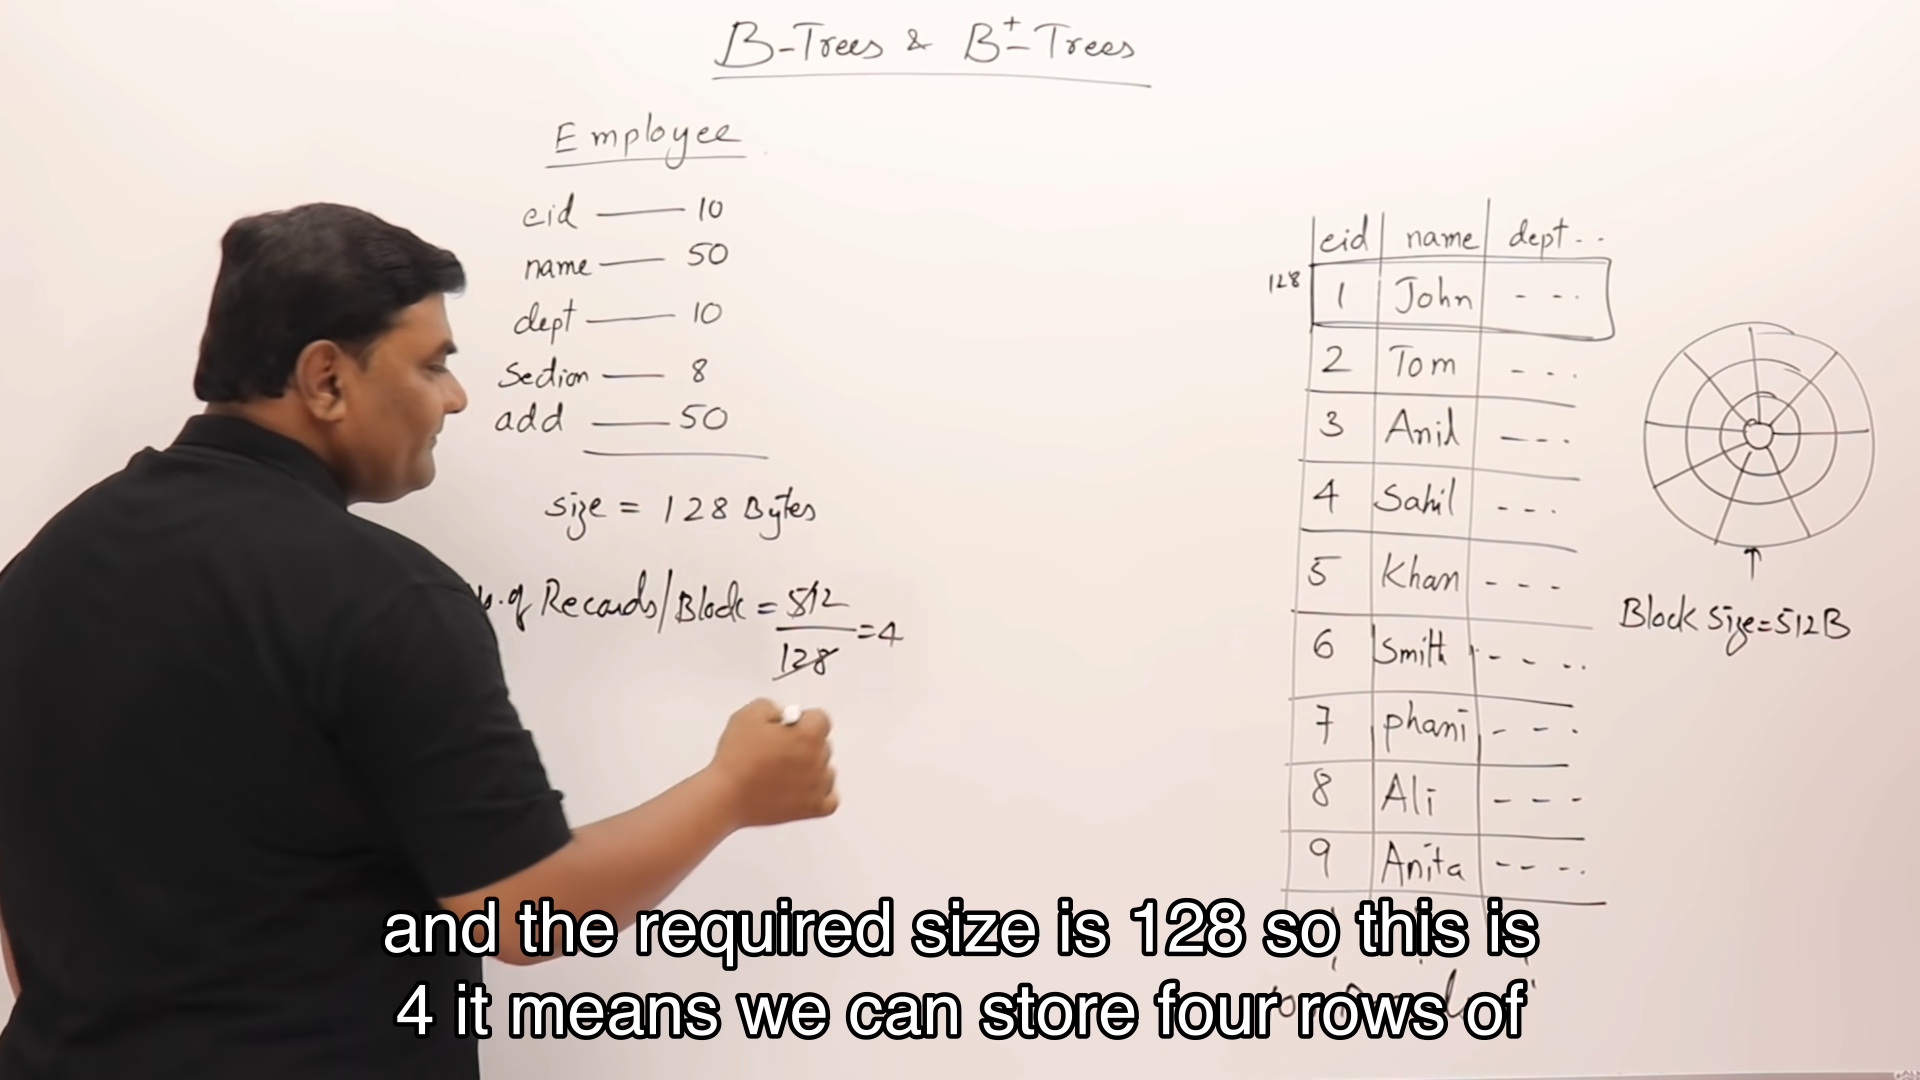 B-Trees & B+-Trees
Employee
eid — 10
name — 50
dept — 10
Section — 8
add — 50
size = 128 Bytes
of Records/Block = 512
128
=4
eid name dept..
128
1 John - - -
2 Tom - - -
3 Anil - - -
4 Sahil - - -
5 Khan - - -
6 Smith - - - -
7 phani - - -
8 Ali - - -
9 Anita - - - -
Block Size=512B
and the required size is 128 so this is
4 it means we can store four rows of